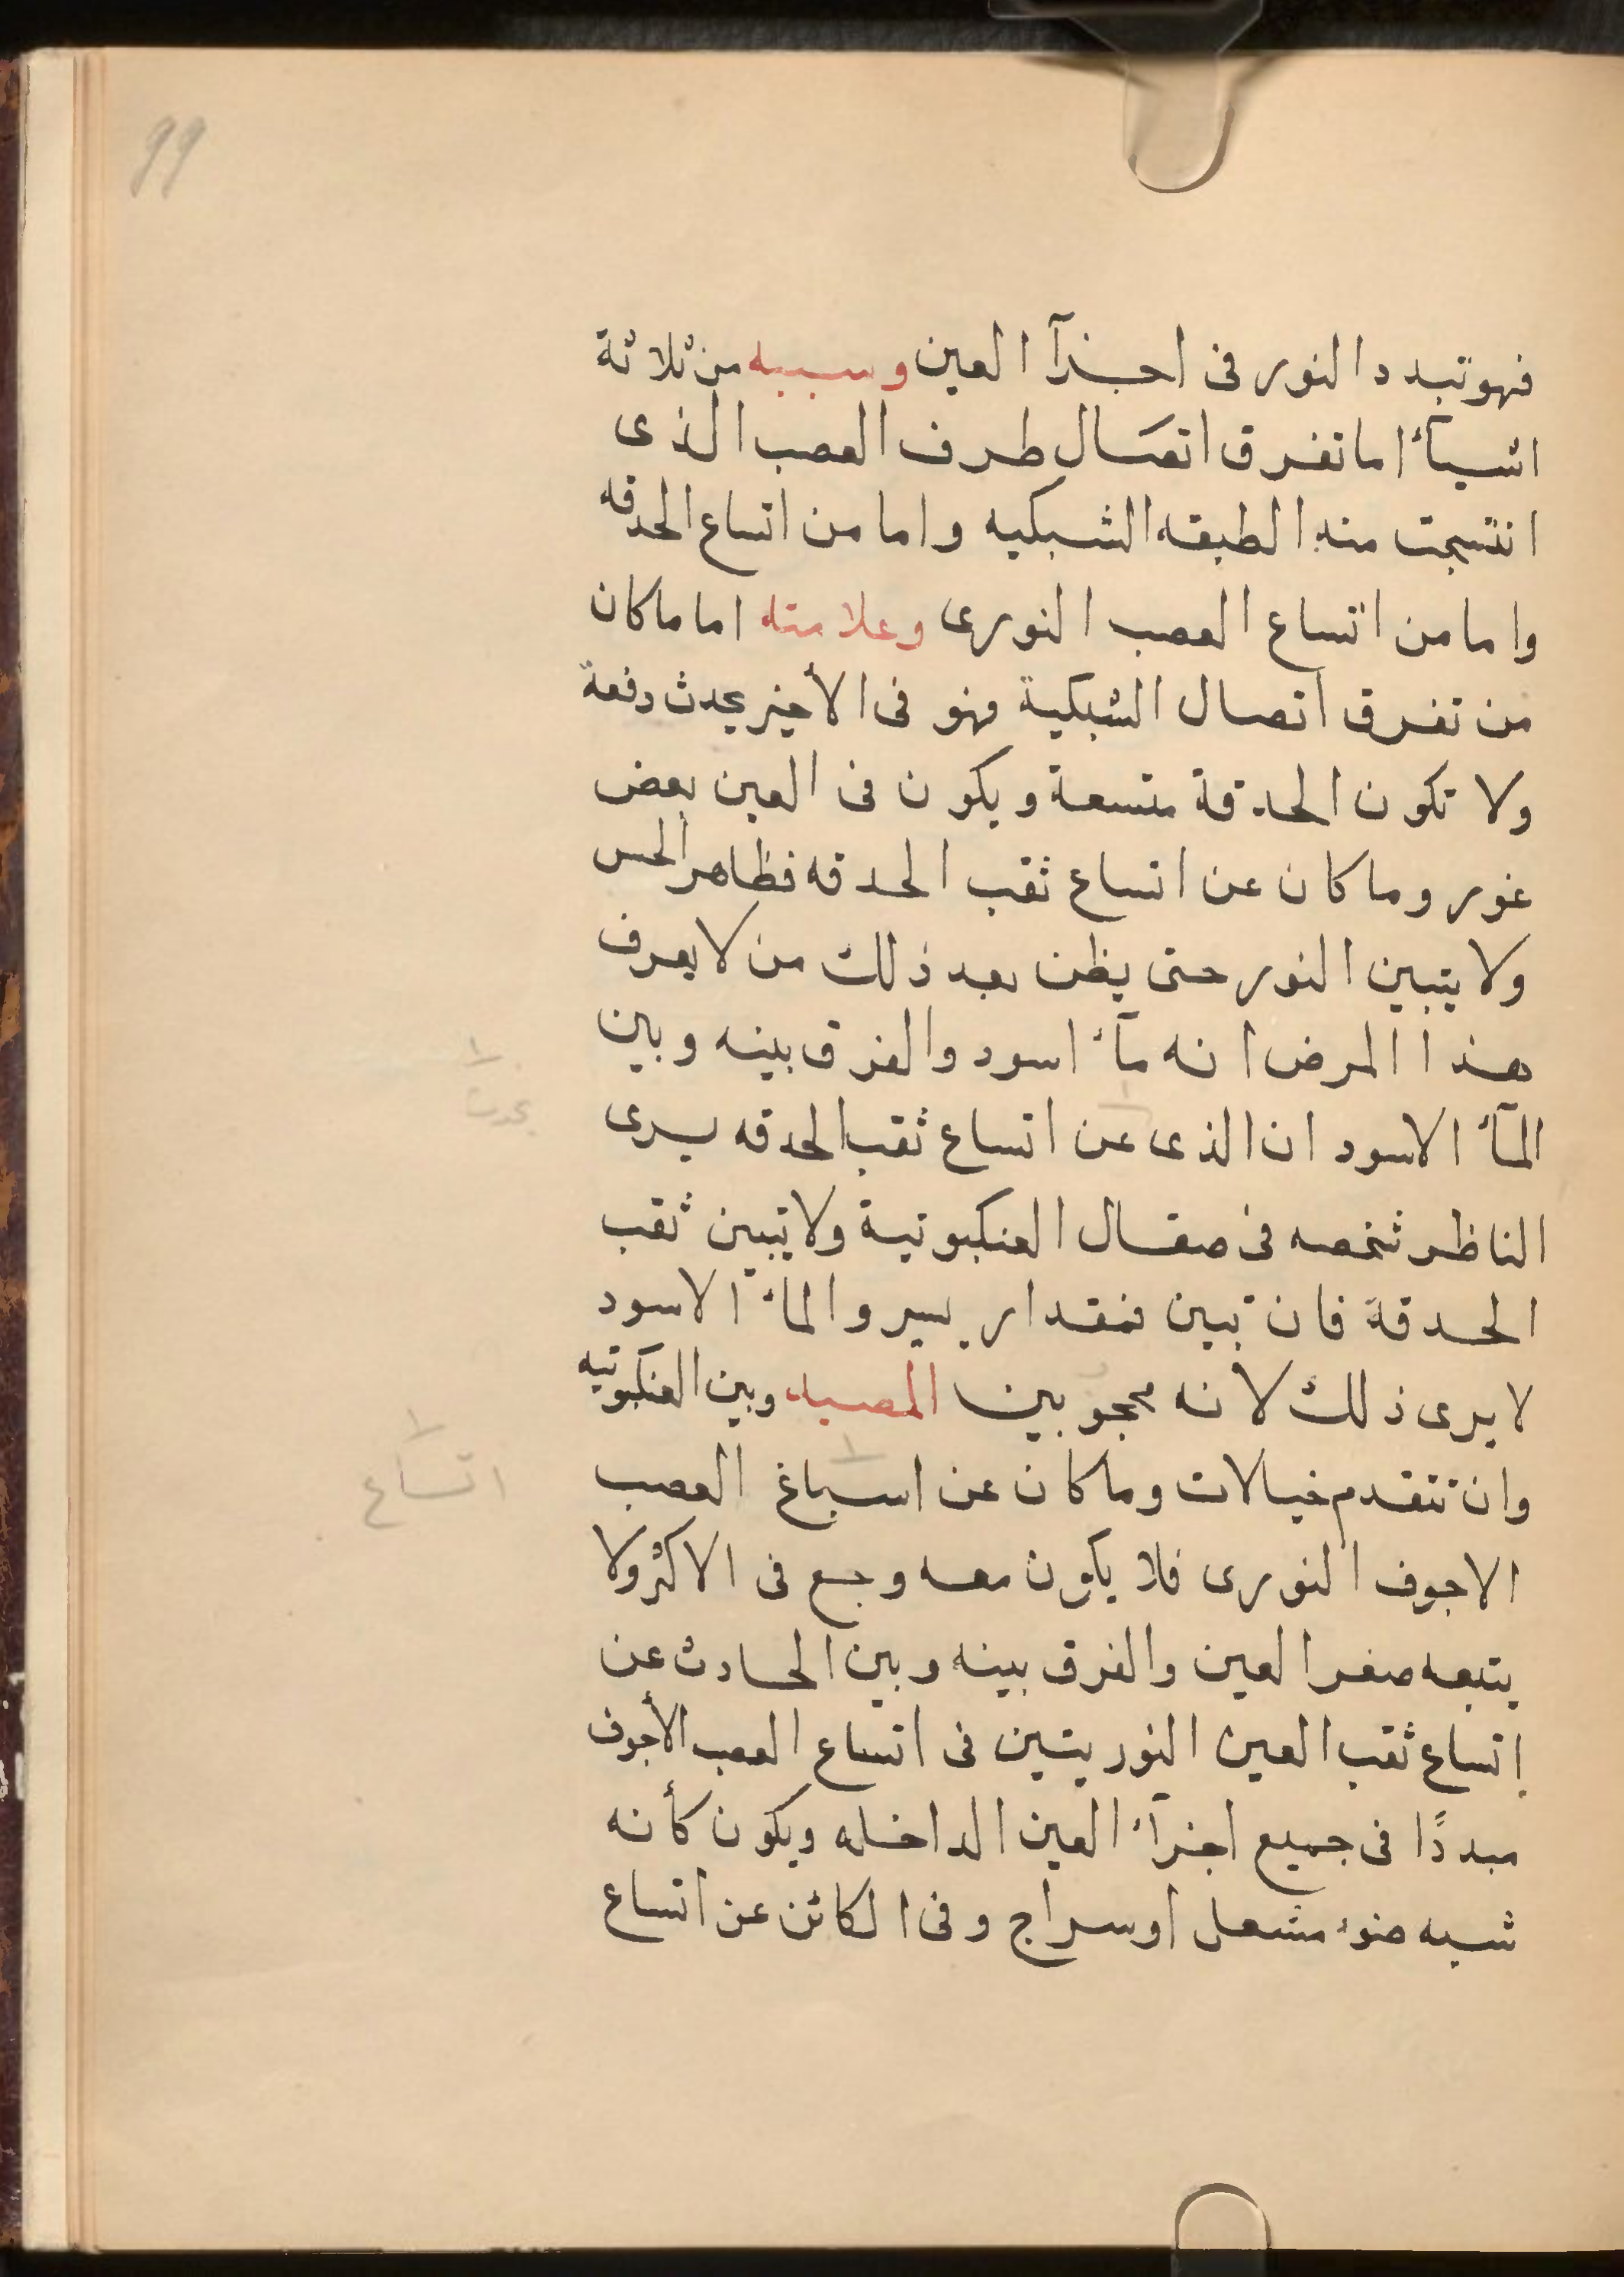 99
فهو تبدد النور فى اجزآ العين وسببه من ثلاثة
اشيآئ اما تفرق اتصال طرف العصب الذى
انتسجت منه الطبقه الشبكيه واما من اتساع الحدقه
واما من اتساع العصب النورى وعلامته اما ما كان
من تفرق اتصال الشبكية فهو فى الأخير يحدث دفعة
ولا تكون الحدقة متسعة ويكون فى العين بعض
غور وما كان عن اتساع ثقب الحدقه فظاهر الحس
ولا يتبين النور حتى يظن بعد ذلك من لا يعرف
هذا المرض انه مآء اسود والفرق بينه وبين
المآء الاسود ان الذى عن اتساع ثقب الحدقه يسرى
الناظر شخصه فى صقال العنكبوتية ولا يتبين ثقب
الحدقة فان تبين فمقدار يسير والمآء الاسود
لا يرى ذلك لانه محجو بين المصيد وبين العنكبوتيه
وان تتقدم خيالات وما كان عن اسباغ العصب
الاجوف النورى فلا يكون معه وجع فى الاكثر ولا
يتبعه صغر العين والفرق بينه وبين الحادث عن
إتساع ثقب العين النوريتين فى اتساع العصب الأجوف
مبددًا فى جميع اجزآء العين الداخله ويكون كأنه
شبه ضوء مشعل او سراج وفى الكائن عن اتساع
يحدث
اتساع